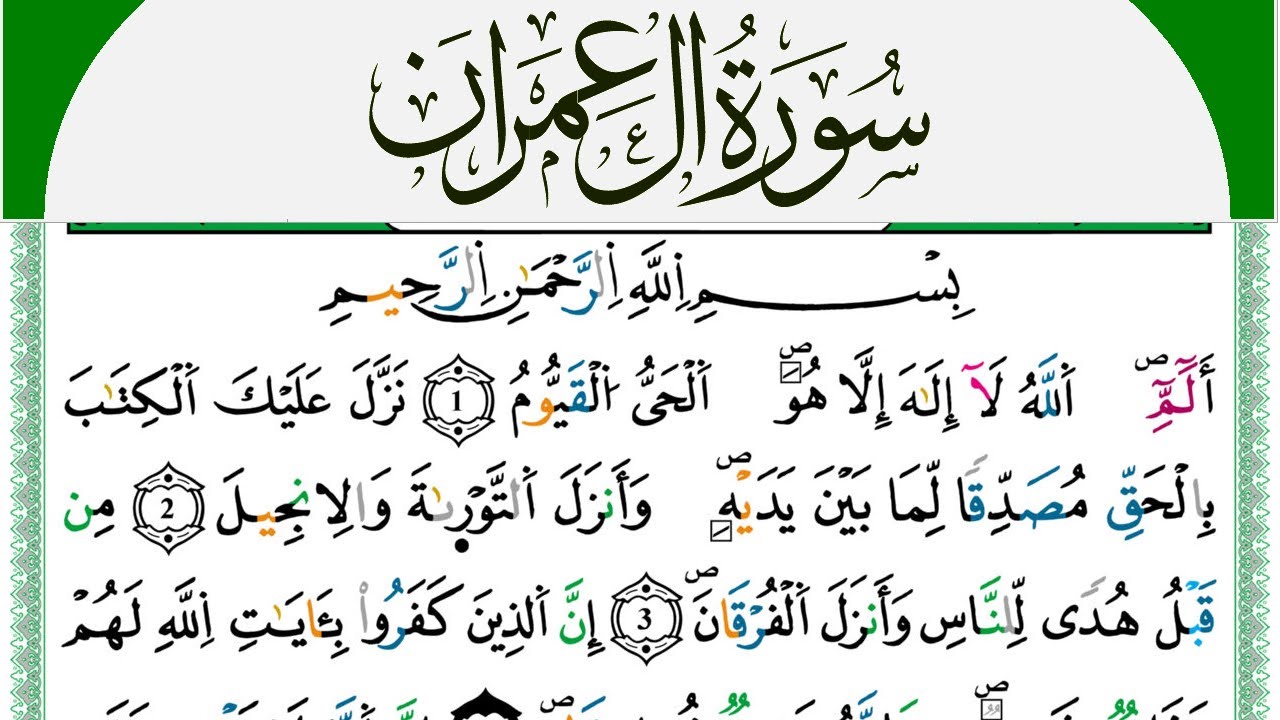 سُورَةُ آلِ عِمْرَان
بِسْمِ اِللَّهِ اِلرَّحْمَٰنِ اِلرَّحِيمِ
أَلَٓمِّٓۖ اَللَّهُ لَآ إِلَٰهَ إِلَّا هُوَۖ اَلْحَىُّ اَلْقَيُّومُ 1 نَزَّلَ عَلَيْكَ اَلْكِتَٰبَ
بِالْحَقِّ مُصَدِّقًا لِّمَا بَيْنَ يَدَيْهِۖ وَأَنزَلَ اَلتَّوْر۪ىٰةَ وَالِانجِيلَ 2 مِن
قَبْلُ هُدًى لِّلنَّاسِ وَأَنزَلَ اَلْفُرْقَانَۖ 3 إِنَّ اَلذِينَ كَفَرُواْ بِـَٔايَٰتِ اِللَّهِ لَهُمْ